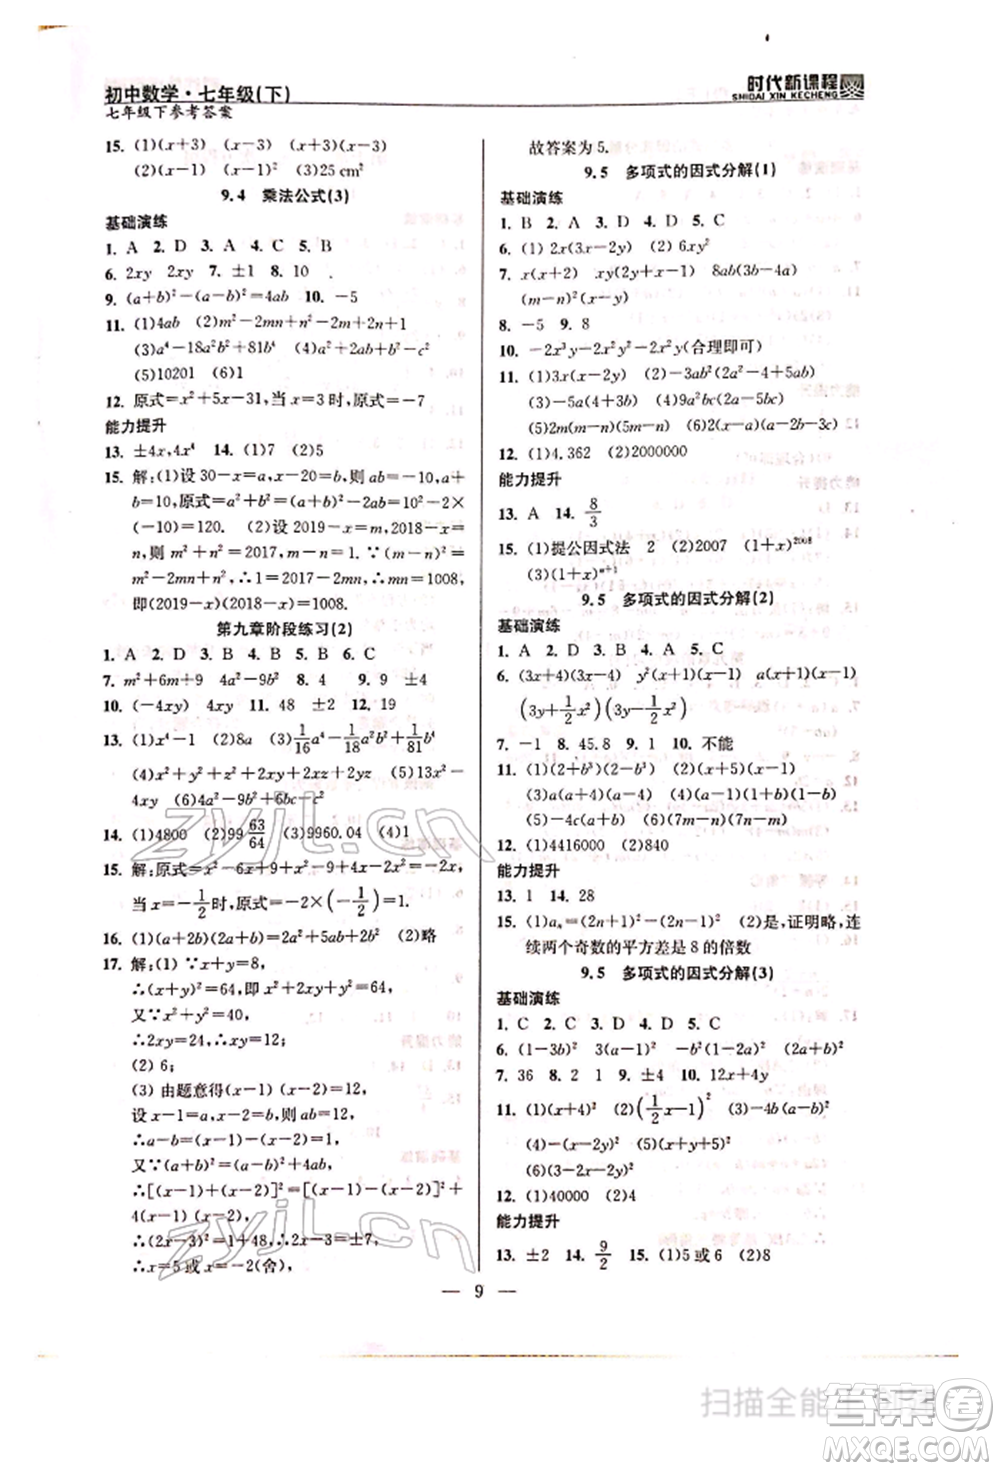 初中数学·七年级(下)
七年级下参考答案
时代新课程
SHIDAI XIN KECHENG
15. (1)(x+3) (x-3) (x+3)(x-3)
(2)(x-1) (x-1)² (3)25 cm²
9.4 乘法公式(3)
基础演练
1. A 2. D 3. A 4. C 5. B
6. 2xy 2xy 7. ±1 8. 10
9. (a+b)²-(a-b)²=4ab 10. -5
11. (1)4ab (2)m²-2mn+n²-2m+2n+1
(3)a⁴-18a²b²+81b⁴ (4)a²-b²-c²
(5)10201 (6)1
12. 原式=x²+5x-31,当x=3时,原式=-7
能力提升
13. ±4x,4x⁴ 14. (1)7 (2)5
15. 解:(1)设30-x=a,x-20=b,则ab=-10,a+
b=10,原式=a²+b²=(a+b)²-2ab=10²-2×
(-10)=120. (2)设2019-x=m,2018-x=
n,则m²+n²=2017,m-n=1.∵(m-n)²=
m²-2mn+n²,∴1=2017-2mn,∴mn=1008,
即(2019-x)(2018-x)=1008.
第九章阶段练习(2)
1. A 2. D 3. D 4. A 5. B 6. C
7. m²+6m+9 4a²-9b² 8. 4 9. 9 ±4
10. (-4xy) 4xy 11. 48 ±2 12. 19
13. (1)x⁴-1 (2)8a (3)1/16a⁴-1/18a²b²+1/81b⁴
(4)x²+y²+z²+2xy+2xz+2yz (5)-4x²+
4xy (6)4a²-9b²+6bc-c²
14. (1)4800 (2)99 63/64 (3)9960.04 (4)1
15. 解:原式=x²-6x+9+x²-9+4x-2x²=-2x,
当x=-1/2时,原式=-2×(-1/2)=1.
16. (1)(a+2b)(2a+b)=2a²+5ab+2b² (2)略
17. 解:(1)∵x+y=8,
∴(x+y)²=64,即x²+y²+2xy=64,
又∵x²+y²=40,
∴2xy=24,∴xy=12;
(2)6;
(3)由题意得(x-1)(x-3)=12,
设x-1=a,x-3=b,则ab=12,
∴a-b=(x-1)-(x-3)=2,
又∵(a+b)²=(a-b)²+4ab,
∴[(x-1)+(x-3)]²=[(x-1)-(x-3)]²+
4(x-1)(x-3)=2²+4×12=52,
∴(x-1)²+(x-3)²
∴x=5或x=-2(舍),
故答案为5.
9.5 多项式的因式分解(1)
基础演练
1. B 2. A 3. D 4. D 5. C
6. (1)2x(3x-2y) (2)6xy²
7. x(x+2) xy(2y-x) 8ab(3b-4a)
(m-n)²(x-y)
8. -5 9. 8
10. -2x³y-2x²y-2x²y(合理即可)
11. (1)3x(x-2y) (2)-3ab²(a²-4+5ab)
(3)-5a(a-5) (4)9a²bc(2b²-3ac)
(5)2(m-n)(2m-n) (6)-2a(x-2)
12. (1)4.362 (2)2000000
能力提升
13. A 14. 8/3
15. (1)提公因式法 2 (2)2007 (1+x)²⁰⁰⁸
(3)(1+x)ⁿ⁺¹
9.5 多项式的因式分解(2)
基础演练
1. A 2. D 3. B 4. A 5. C
6. (3x+4)(3x-4) y²(x+1)(x-1) a(x+1)(x-1)
(3y+1/2x²)(3y-1/2x²)
7. -1 8. 45.8 9. 1 10. 不能
11. (1)(2+b³)(2-b³) (2)(2x-y)(2x+y)
(3)a(a+4)(a-4) (4)3(m+2n)(m-2n)
(5)-4c(a+c) (6)4(x-2y)(2x-y)
12. (1)4416000 (2)840
能力提升
13. 1 14. 28
15. (1)aₙ=(2n+1)²-(2n-1)² (2)是,证明略,连
续两个奇数的平方差是8的倍数
9.5 多项式的因式分解(3)
基础演练
1. C 2. C 3. C 4. D 5. C
6. (1-3b)² 3(a-1)² -b²(1-2a)² (2a+b)²
7. 36 8. 2 1 9. ±4 10. 12x+4y
11. (1)(x+4)² (2)(1/2x-1)² (3)-4b(a-b)²
(4)-(x-2y)² (5)(x+y-2)²
(6)(3-x+2y)²
12. (1)40000 (2)4
能力提升
13. ±2 14. 9/2 15. (1)5或6 (2)8
— 9 —
zyjl.cn
zyjl.cn
答案卷
MXQE.COM